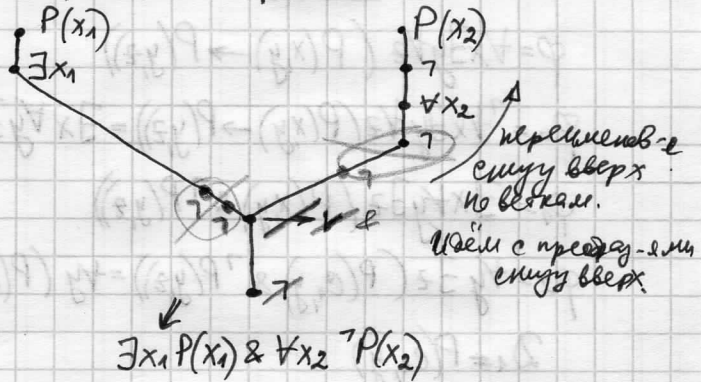 P(x₁) P(x₂)
∃x₁ ¬
∀x₂
¬
переименов-е
снизу вверх
по веткам.
¬ ¬ ¬
→ ∨ &
Идём с преобраз-ями
снизу вверх.
¬
∃x₁ P(x₁) & ∀x₂ ¬P(x₂)